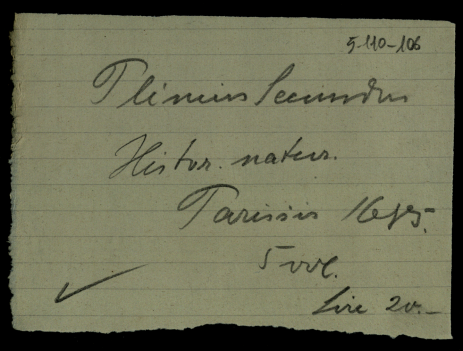 5-110-106
Plinius Secundus
Histor. natur.
Parisiis 1685.
5 vol.
Lire 20.-